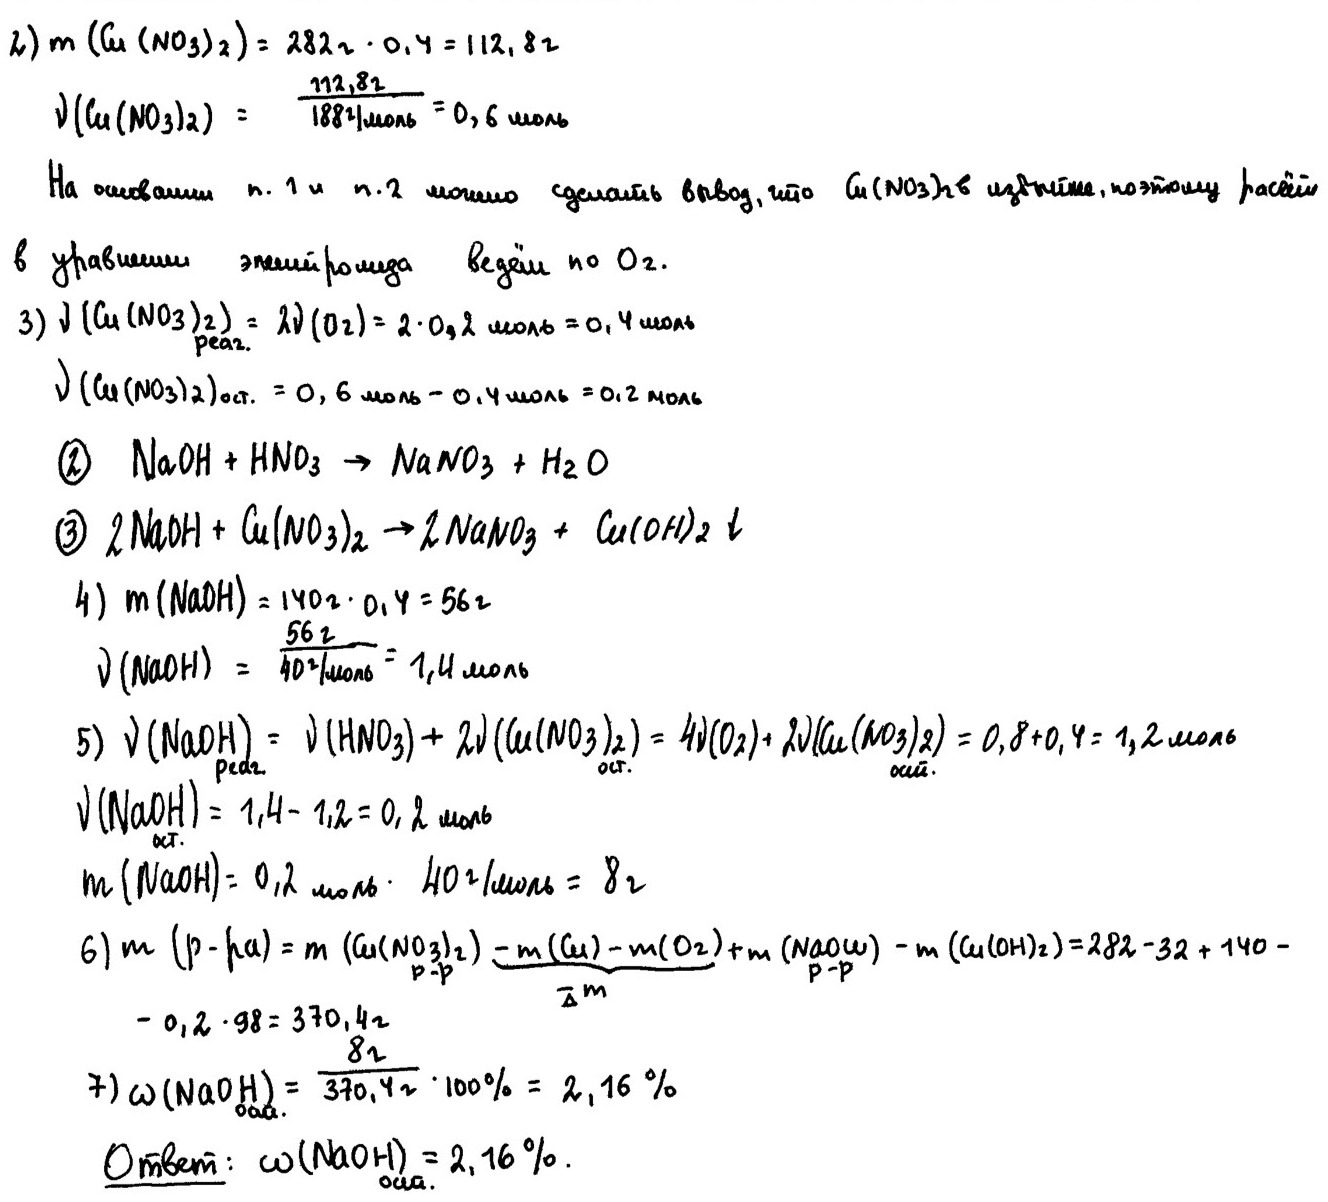 2) m (Cu (NO3)2) = 282г · 0,4 = 112,8г
ν(Cu(NO3)2) = 112,8г / 188г/моль = 0,6 моль
На основании п. 1 и п. 2 можно сделать вывод, что Cu(NO3)2 в избытке, поэтому расчёт
в уравнении электролиза ведём по O2.
3) ν(Cu(NO3)2)реаг. = 2ν(O2) = 2·0,2 моль = 0,4 моль
ν(Cu(NO3)2)ост. = 0,6 моль – 0,4 моль = 0,2 моль
② NaOH + HNO3 → NaNO3 + H2O
③ 2NaOH + Cu(NO3)2 → 2NaNO3 + Cu(OH)2↓
4) m(NaOH) = 140г · 0,4 = 56г
ν(NaOH) = 56г / 40г/моль = 1,4 моль
5) ν(NaOH)реаг. = ν(HNO3) + 2ν(Cu(NO3)2)ост. = 4ν(O2) + 2ν(Cu(NO3)2)ост. = 0,8+0,4 = 1,2 моль
ν(NaOH)ост. = 1,4 – 1,2 = 0,2 моль
m(NaOH) = 0,2 моль · 40г/моль = 8г
6) m (р-ра) = m (Cu(NO3)2)р-р – m(Cu) – m(O2) + m(NaOH)р-р – m(Cu(OH)2) = 282 – 32 + 140 –
Δm
– 0,2 · 98 = 370,4г
7) ω(NaOH)ост. = 8г / 370,4г · 100% = 2,16%
Ответ: ω(NaOH)ост. = 2,16%.